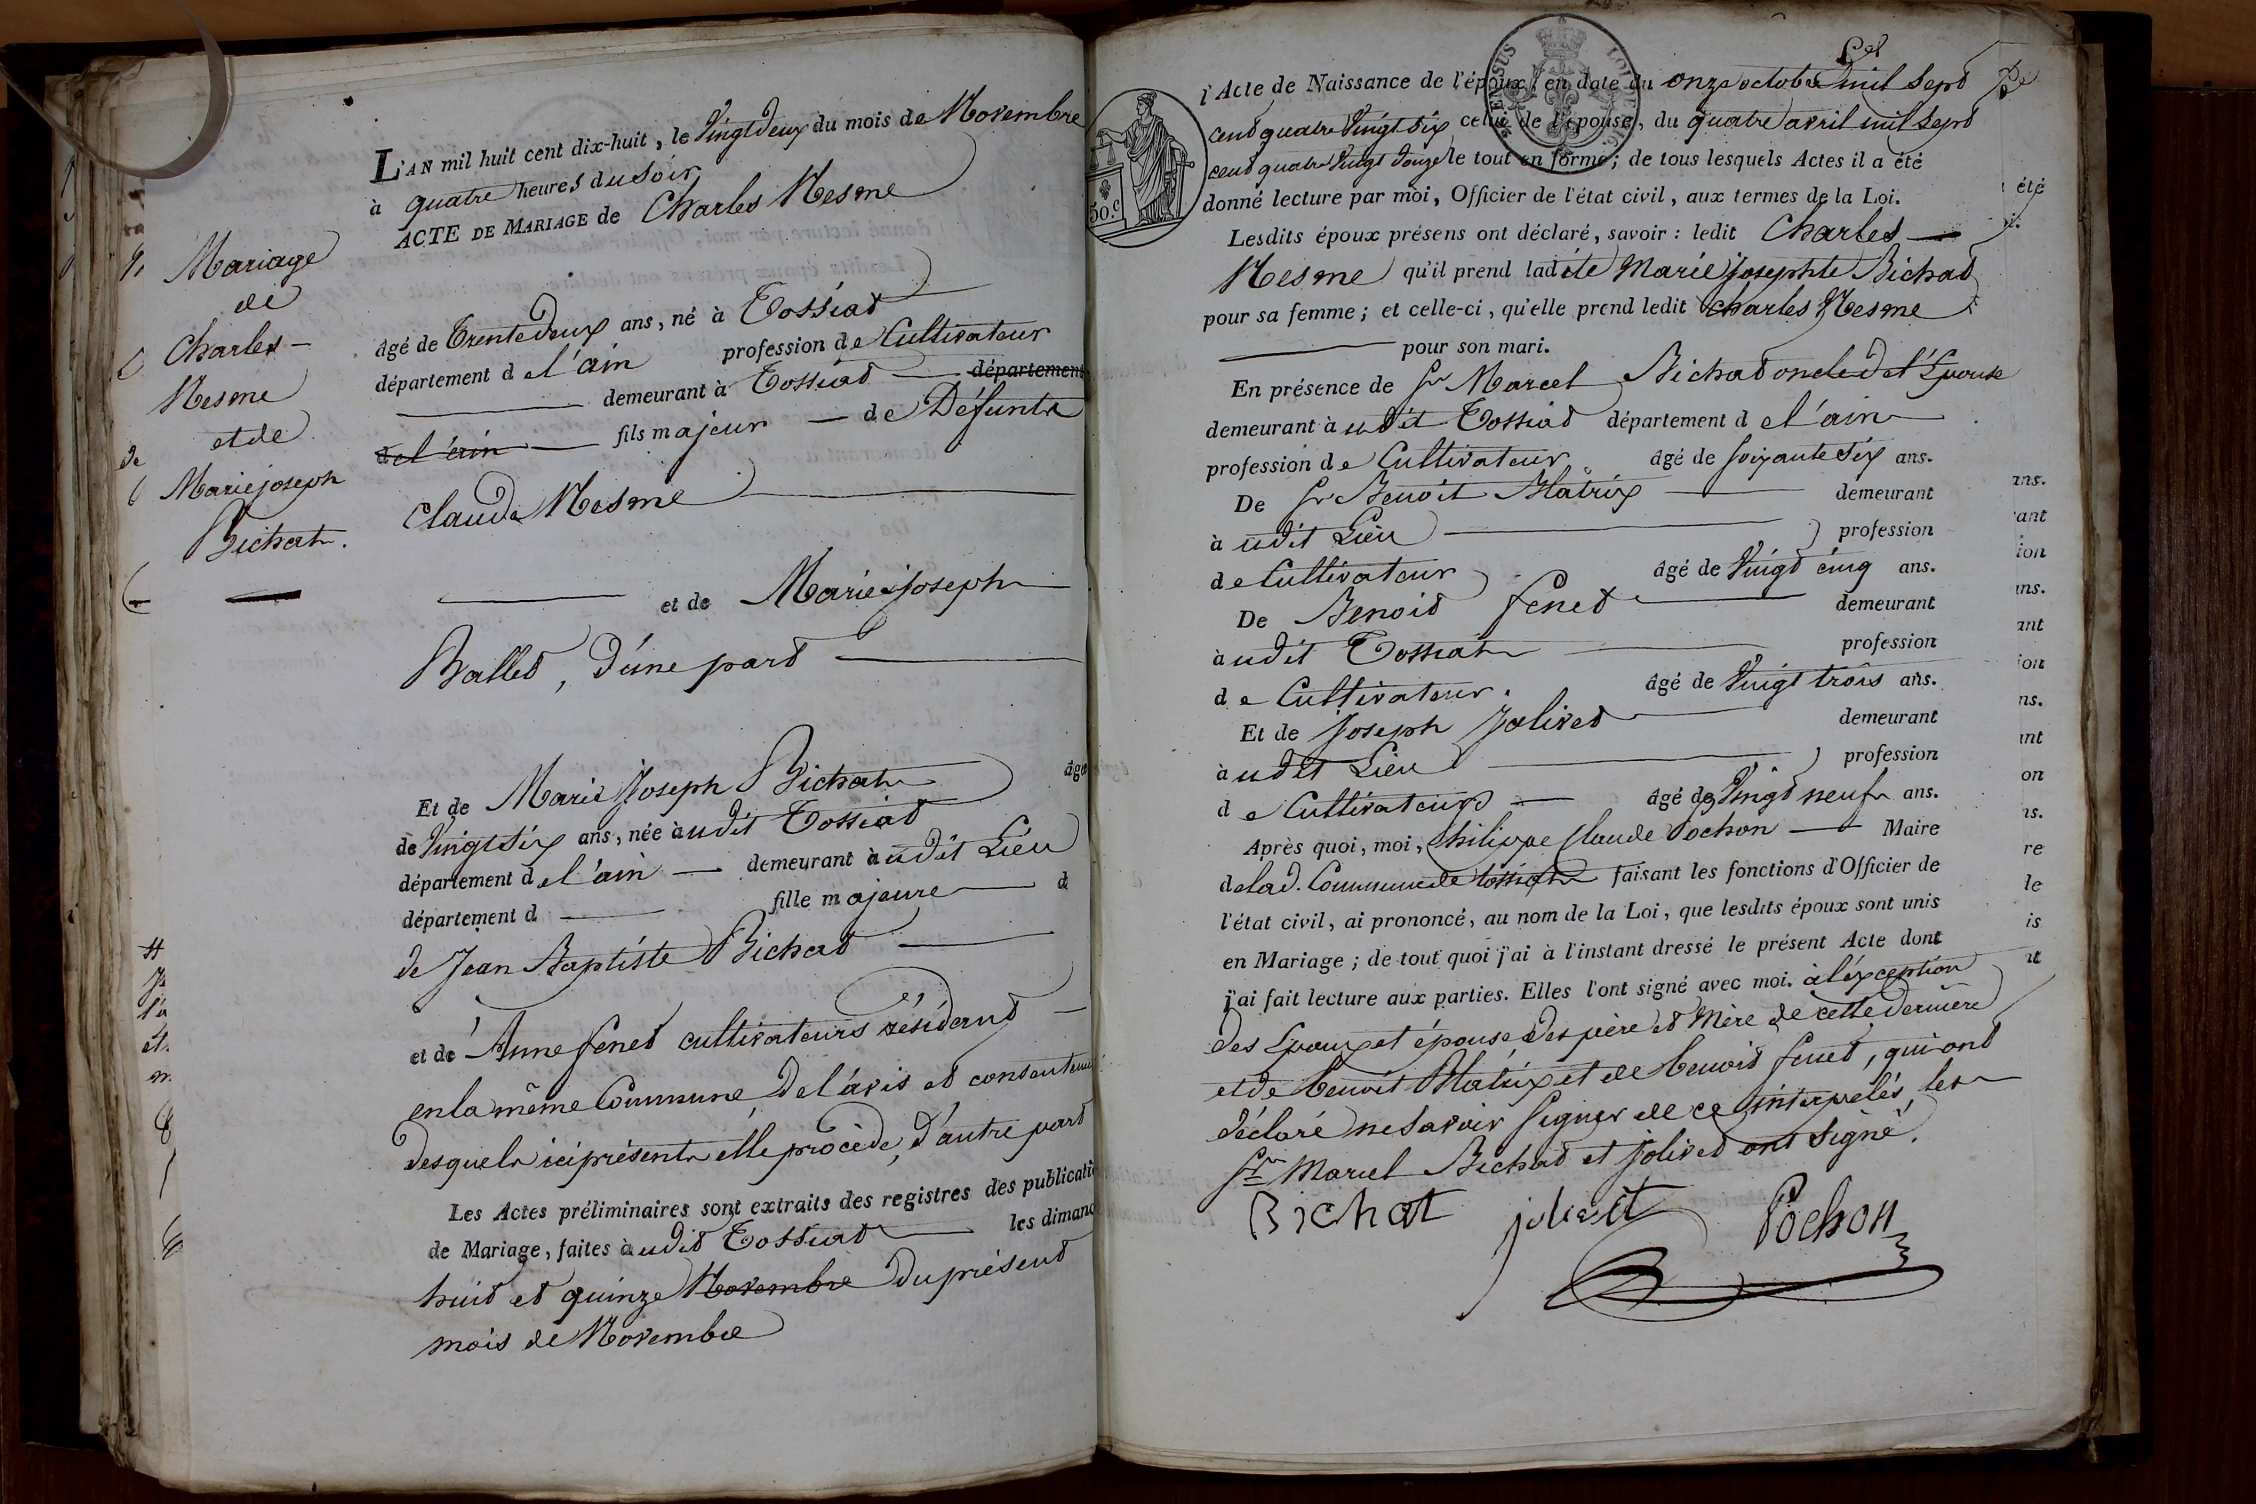 Mariage
de
Charles
Mesme
et de
Marie joseph
Bichat.
L'AN mil huit cent dix-huit, le Vingt deux du mois de Novembre
à quatre heures du soir,
ACTE DE MARIAGE de Charles Mesme
âgé de trente deux ans, né à Tossiat
département de l'ain profession de Cultivateur
demeurant à Tossiat département
de l'ain fils majeur de Défunts
Claude Mesme
et de Marie joseph
Ballet, d'une part
Et de Marie joseph Bichat âgée
de Vingt six ans, née àudit Tossiat
département de l'ain demeurant àudit Lieu
département d fille majeure d
de Jean Baptiste Bichat
et de Anne fenet cultivateurs résidant
en la même Commune De l'avis et consentement
desquels ici présents elle procède, d'autre part
Les Actes préliminaires sont extraits des registres des publicati
de Mariage, faites àudit Tossiat les dimanc
huit et quinze Novembre Du présent
mois de Novembre
l'Acte de Naissance de l'époux, en date du onze octobre mil sept
cent quatre Vingt six celui de l'épouse, du quatre avril mil sept
cent quatre Vingt douze le tout en forme; de tous lesquels Actes il a été
donné lecture par moi, Officier de l'état civil, aux termes de la Loi.
Lesdits époux présens ont déclaré, savoir: ledit Charles
Mesme qu'il prend ladite Marie josephte Bichat
pour sa femme; et celle-ci, qu'elle prend ledit Charles Mesme
pour son mari.
En présence de Sr Marcel Bichat oncle de l'Epouse
demeurant àudit Tossiat département de l'ain
profession de Cultivateur âgé de soixante six ans.
De Sr Benoit Blatrix demeurant
àudit Lieu profession
de Cultivateur âgé de Vingt cinq ans.
De Benoit fenet demeurant
àudit Tossiat profession
de Cultivateur. âgé de Vingt trois ans.
Et de joseph jolivet demeurant
àudit Lieu profession
de Cultivateur âgé de Vingt neuf ans.
Après quoi, moi, Philippe Claude Pochon Maire
de lad. Commune de tossiat faisant les fonctions d'Officier de
l'état civil, ai prononcé, au nom de la Loi, que lesdits époux sont unis
en Mariage; de tout quoi j'ai à l'instant dressé le présent Acte dont
j'ai fait lecture aux parties. Elles l'ont signé avec moi. à l'exception
des Epoux et épouse, des père et Mère de cette dernière
et de benoit Blatrix et de benoit fenet, qui ont
déclaré ne savoir signer de ce interpelés, les
Srs Marcel Bichat et jolivet ont signé.
Bichat jolivet Pochon